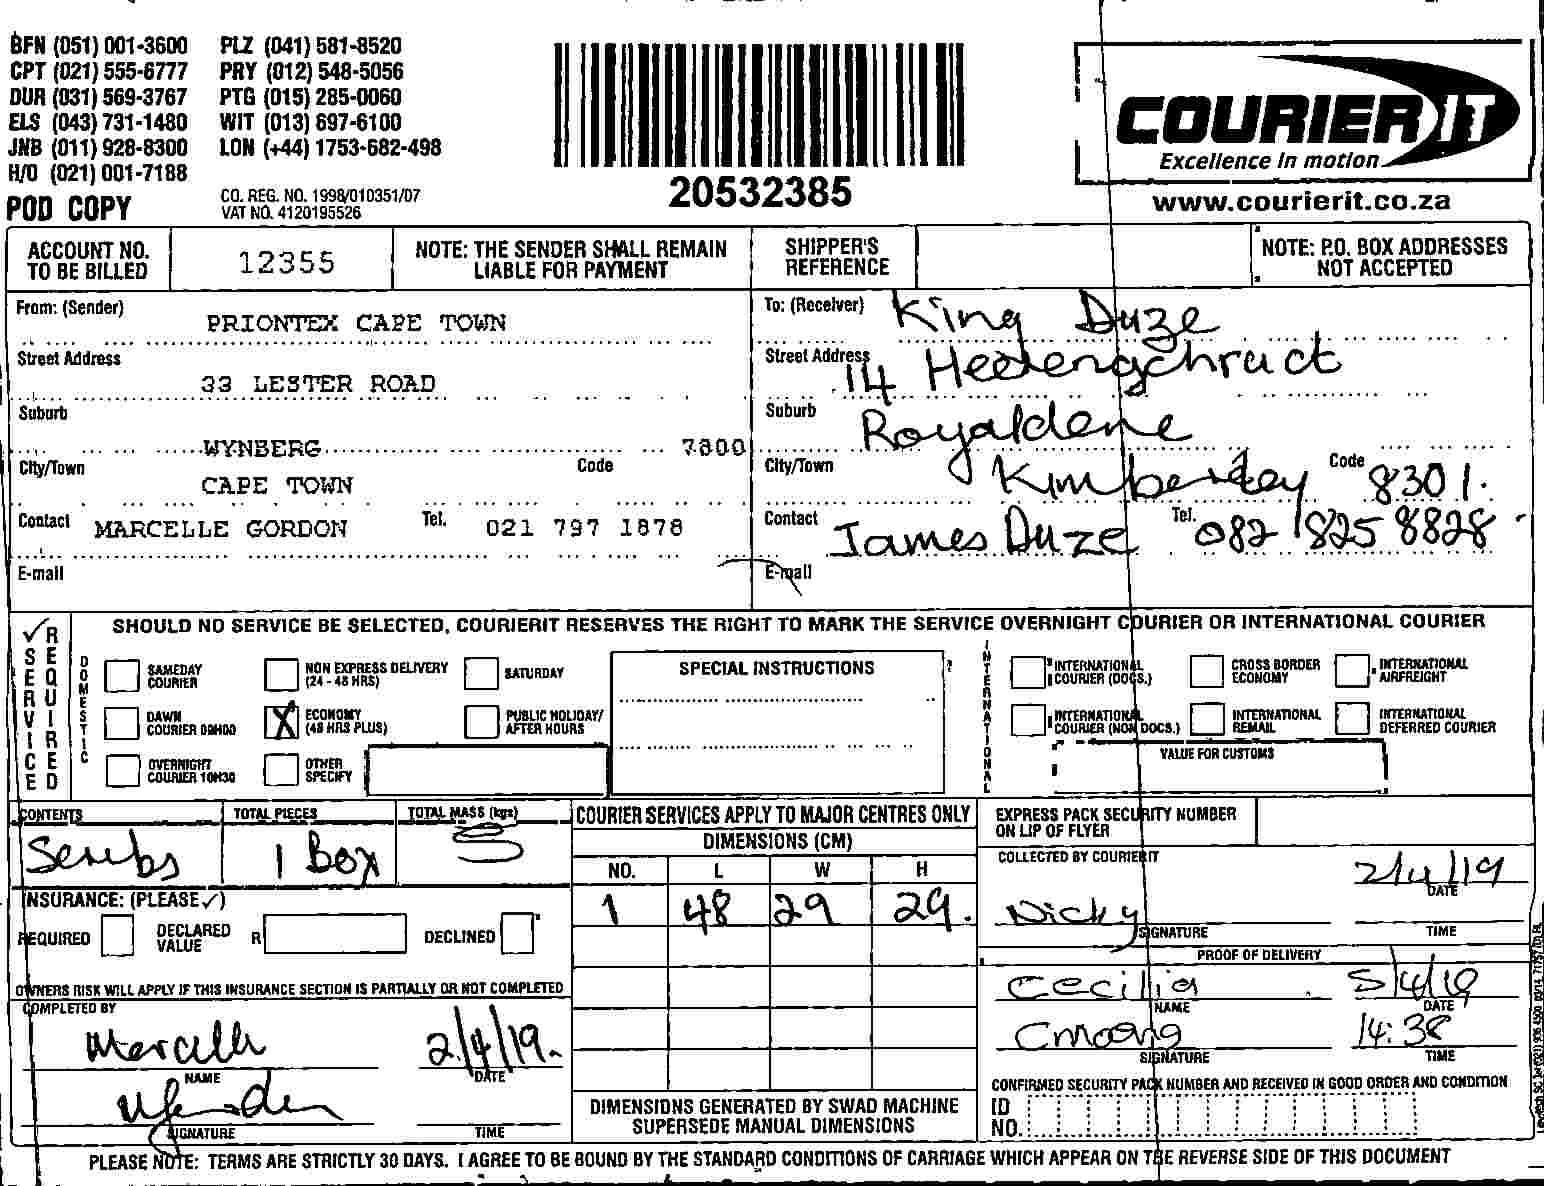 BFN (051) 001-3600 PLZ (041) 581-8520
CPT (021) 555-6777 PRY (012) 548-5056
DUR (031) 569-3767 PTG (015) 285-0060
ELS (043) 731-1480 WIT (013) 697-6100
JNB (011) 928-8300 LON (+44) 1753-682-498
H/O (021) 001-7188
POD COPY
CO. REG. NO. 1998/010351/07
VAT NO. 4120195526
20532385
COURIER IT
Excellence in motion
www.courierit.co.za
ACCOUNT NO. TO BE BILLED
12355
NOTE: THE SENDER SHALL REMAIN LIABLE FOR PAYMENT
SHIPPER'S REFERENCE
NOTE: P.O. BOX ADDRESSES NOT ACCEPTED
From: (Sender) PRIONTEX CAPE TOWN
Street Address 33 LESTER ROAD
Suburb WYNBERG 7800
City/Town CAPE TOWN Code
Contact MARCELLE GORDON Tel. 021 797 1878
E-mail
To: (Receiver) King Duze
Street Address 14
Suburb Royaldene
City/Town Kimberley Code 8301.
Contact James Duze Tel. 082 825 8828
E-mail
SERVICE REQUIRED
SHOULD NO SERVICE BE SELECTED, COURIERIT RESERVES THE RIGHT TO MARK THE SERVICE OVERNIGHT COURIER OR INTERNATIONAL COURIER
DOMESTIC
SAMEDAY COURIER
NON EXPRESS DELIVERY (24 - 48 HRS)
SATURDAY
DAWN COURIER 09H00
X ECONOMY (48 HRS PLUS)
PUBLIC HOLIDAY/ AFTER HOURS
OVERNIGHT COURIER 10H30
OTHER SPECIFY
SPECIAL INSTRUCTIONS
INTERNATIONAL
INTERNATIONAL COURIER (DOCS.)
CROSS BORDER ECONOMY
INTERNATIONAL AIRFREIGHT
INTERNATIONAL COURIER (NON DOCS.)
INTERNATIONAL REMAIL
INTERNATIONAL DEFERRED COURIER
VALUE FOR CUSTOMS
CONTENTS TOTAL PIECES TOTAL MASS (kgs)
Scrubs 1 Box 5
INSURANCE: (PLEASE ✓)
REQUIRED DECLARED VALUE R DECLINED
OWNERS RISK WILL APPLY IF THIS INSURANCE SECTION IS PARTIALLY OR NOT COMPLETED
COMPLETED BY
2/4/19.
NAME DATE
SIGNATURE TIME
COURIER SERVICES APPLY TO MAJOR CENTRES ONLY
DIMENSIONS (CM)
NO. L W H
1 48 29 29.
DIMENSIONS GENERATED BY SWAD MACHINE SUPERSEDE MANUAL DIMENSIONS
EXPRESS PACK SECURITY NUMBER ON LIP OF FLYER
COLLECTED BY COURIERIT
2/4/19
DATE
Nicky
SIGNATURE TIME
PROOF OF DELIVERY
Cecilia 5/4/19
NAME DATE
14:38
SIGNATURE TIME
CONFIRMED SECURITY PACK NUMBER AND RECEIVED IN GOOD ORDER AND CONDITION
ID NO.
PLEASE NOTE: TERMS ARE STRICTLY 30 DAYS. I AGREE TO BE BOUND BY THE STANDARD CONDITIONS OF CARRIAGE WHICH APPEAR ON THE REVERSE SIDE OF THIS DOCUMENT